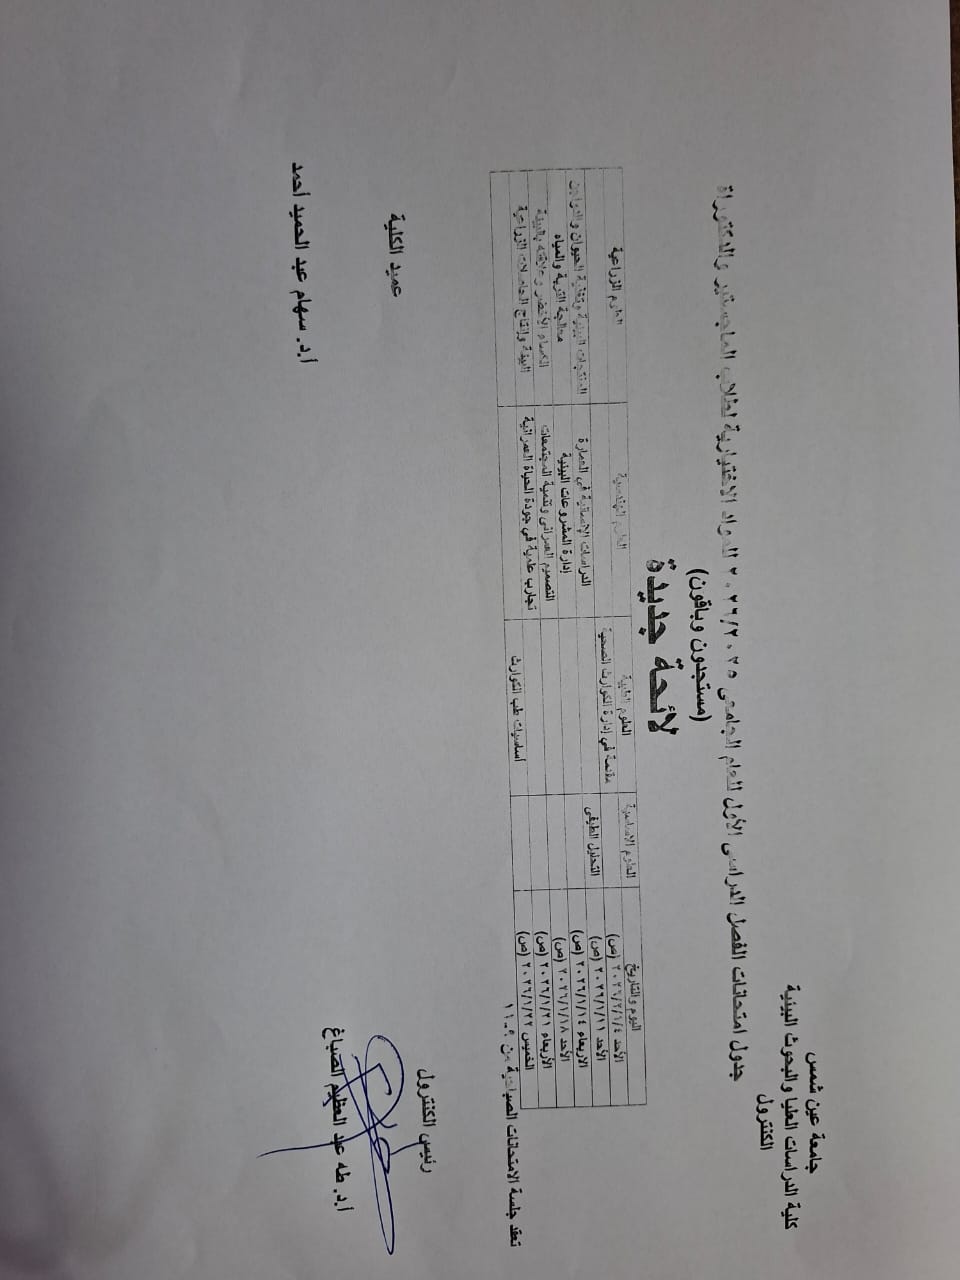 جامعة عين شمس
كلية الدراسات العليا والبحوث البيئية
الكنترول
جدول امتحانات الفصل الدراسى الأول للعام الجامعى ٢٠٢٦/٢٠٢٥ للمواد الاختيارية لطلاب الماجستير والدكتوراة
(مستجدون وباقون)
لائحة جديدة
اليوم والتاريخ العلوم الاساسية العلوم الطبية العلوم الهندسية العلوم الزراعية
الأحد (ص) مقدمة في إدارة الكوارث الصحية
الأحد ٢٠٢٦/١/١١ (ص) التحليل الطيفى
الاربعاء ٢٠٢٦/١/١٤ (ص) الدراسات الإنسانية في العمارة المنتجات البيئية وتغذية الحيوان والدواجن
الأحد ٢٠٢٦/١/١٨ (ص) إدارة المشروعات البيئية معالجة التربة والمياه
الأربعاء ٢٠٢٦/١/٢١ (ص) التصميم العمرانى وتنمية المجتمعات السماد الأخضر وعلاقته بالبيئة
الخميس ٢٠٢٦/١/٢٢ (ص) أساسيات طب الكوارث تجارب علمية في جودة الحياة العمرانية البيئة وإنتاج الحاصلات الزراعية
تعقد جلسة الامتحانات الصباحية من ٩ـ ١١
رئيس الكنترول عميد الكلية
أ.د. طه عبد العظيم الصباغ أ.د. سهام عبد الحميد أحمد